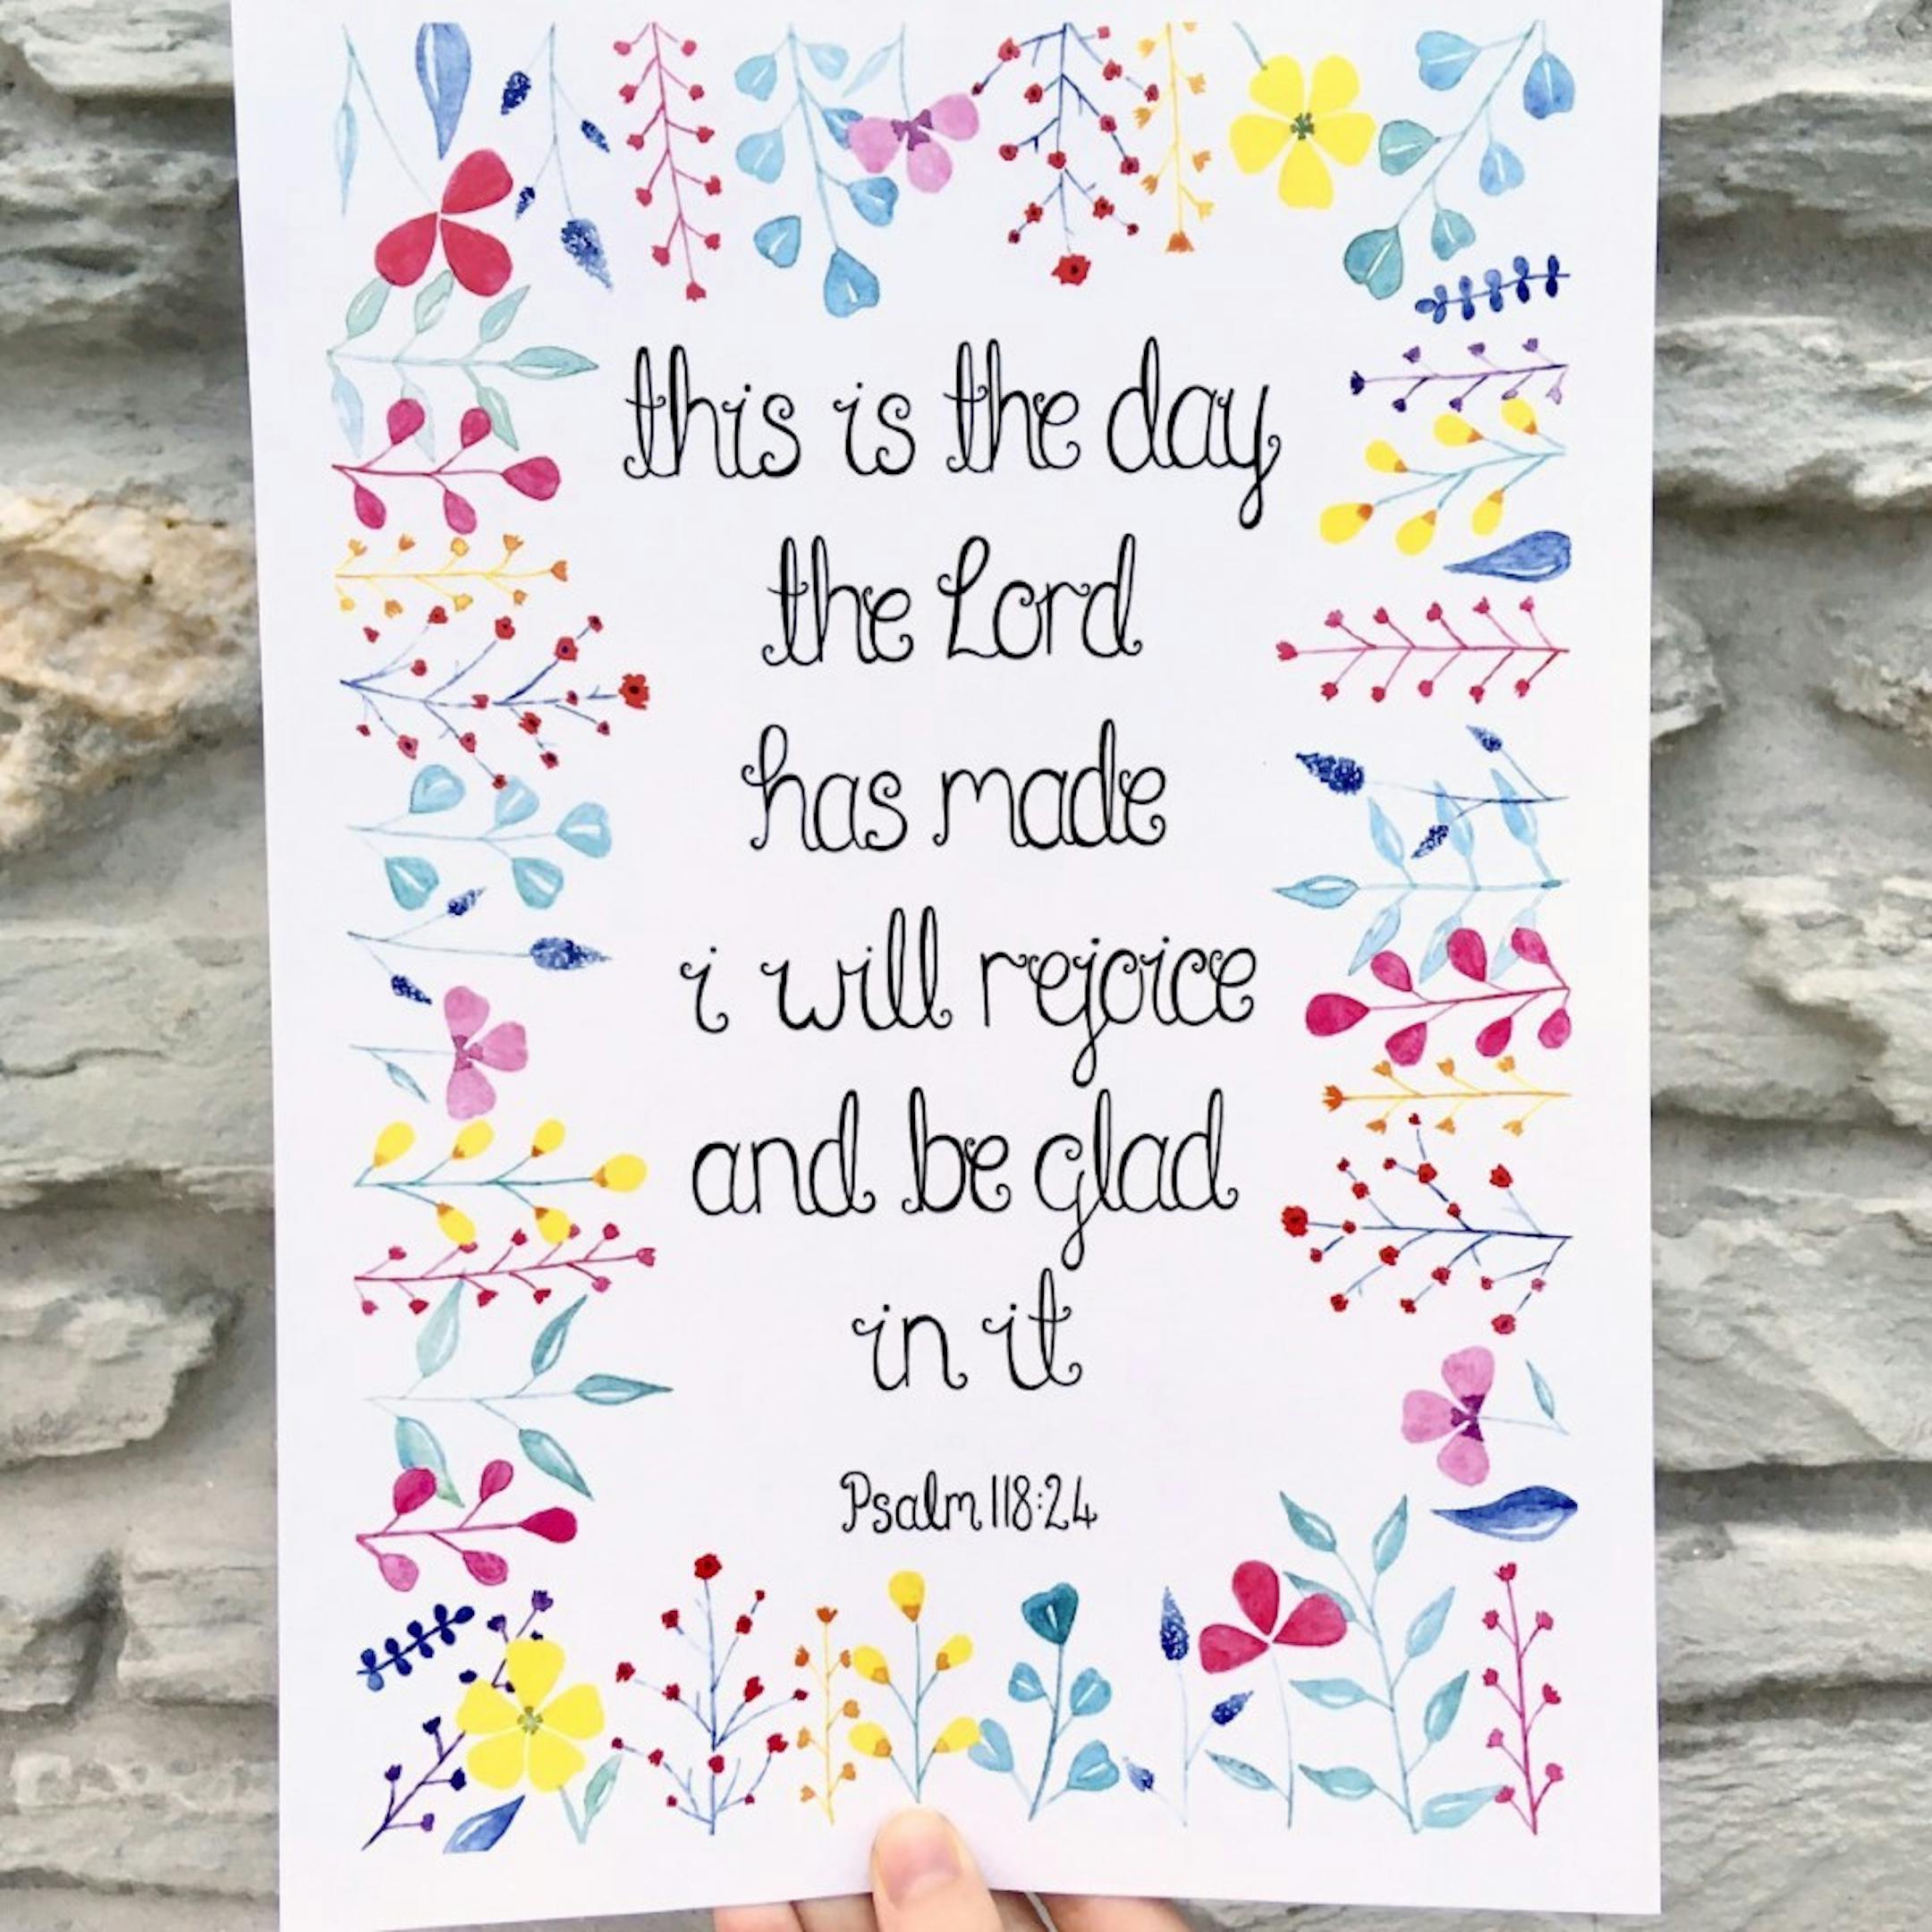 this is the day
the Lord
has made
i will rejoice
and be glad
in it
Psalm 118:24